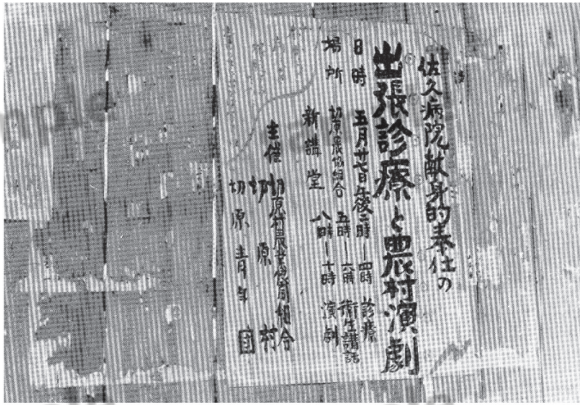 佐久病院献身的奉仕の
出張診療と農村演劇
日時 五月廿 日午後二時―四時 診療
五時―六時 衛生講話
場所 切原農協組合
新講堂 八時―十時 演劇
主催 切原村農業協同組合
切原村
切原青年団